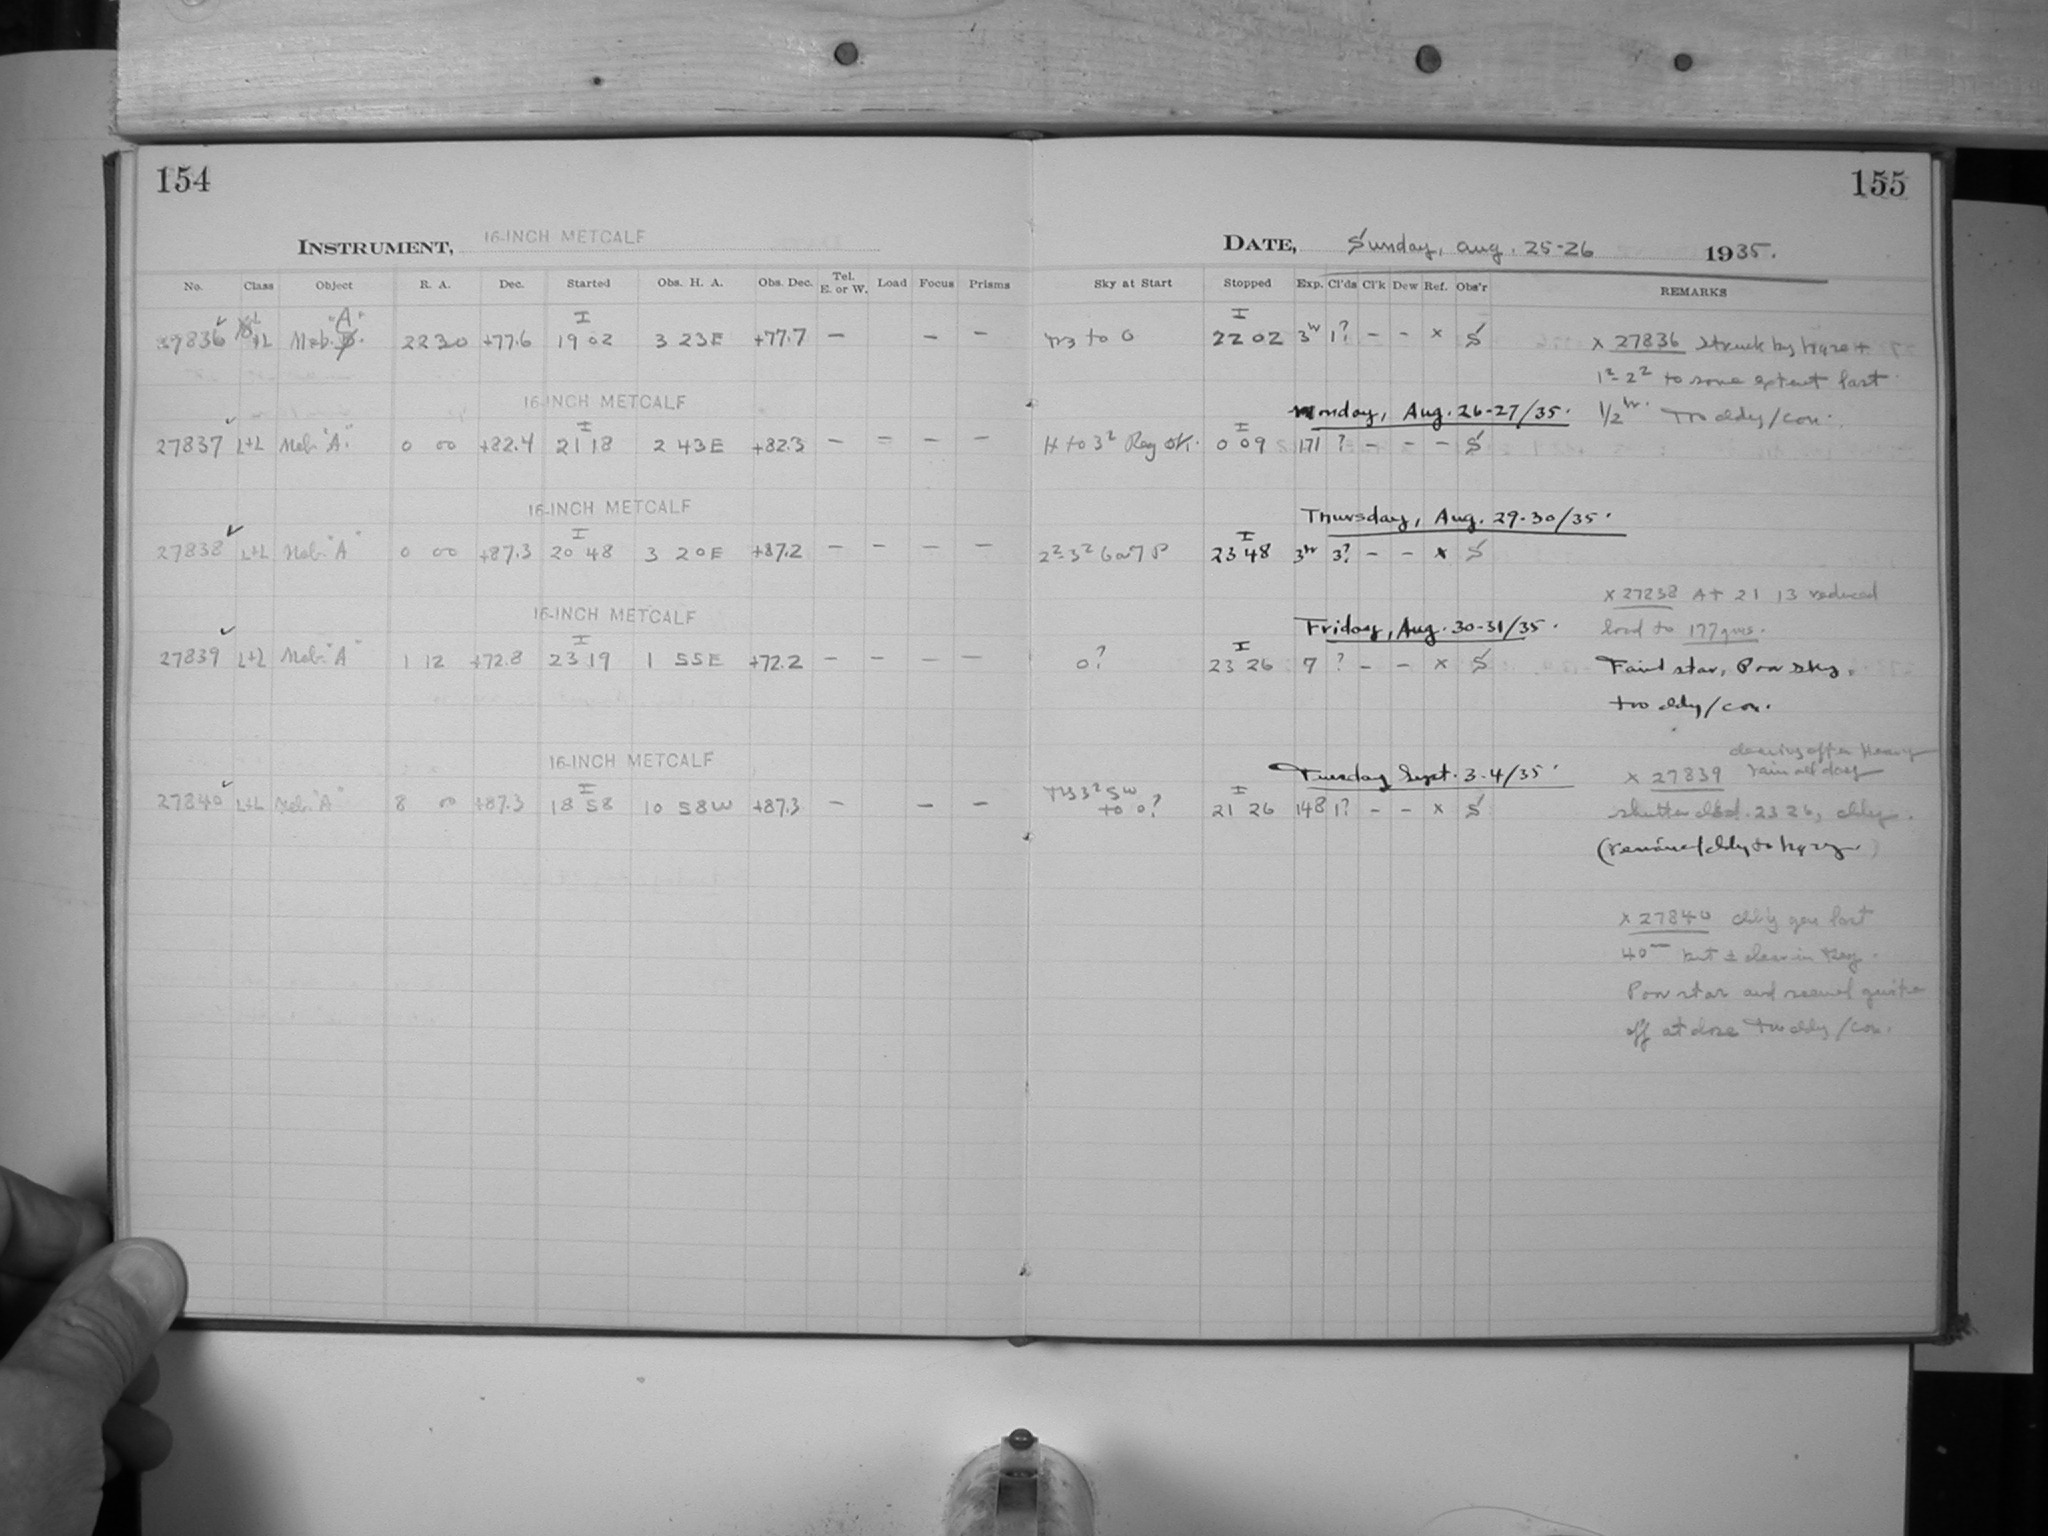 154
155
INSTRUMENT, 16-INCH METCALF
DATE, Sunday, Aug. 25-26 1935.
No. Class Object R. A. Dec. Started Obs. H. A. Obs. Dec. Tel. E. or W. Load Focus Prisms Sky at Start Stopped Exp. Cl'ds Cl'k Dew Ref. Obs'r REMARKS
27836 L+L Neb. "A" 22 30 +77.6 I 19 02 3 23E +77.7 — — — to 0 I 22 02 3h 1? – – x S x 27836 struck by
1²-2² to some extent last
16-INCH METCALF Monday, Aug. 26-27/35. 1/2 h. Too cldy/con.
27837 L+L Neb. "A" 0 00 +82.4 I 21 18 2 43E +82.3 — = — — H to 3² Reg OK. I 0 09 171 ? – – – S
16-INCH METCALF Thursday, Aug. 29-30/35.
27838 L+L Neb. "A" 0 00 +87.3 I 20 48 3 20E +87.2 — — — — 2²-3² I 23 48 3h 3? – – x S
x 27238 At 21 13 reduced
16-INCH METCALF Friday, Aug. 30-31/35. load to 177 gms.
27839 L+L Neb. "A" 1 12 +72.8 I 23 19 1 55E +72.2 — — — — 0? I 23 26 7 ? – – x S Faint star, Poor sky,
too cldy/con.
16-INCH METCALF Tuesday Sept. 3-4/35. clearing after Heavy
x 27839 rain all day
27840 L+L Neb. "A" 8 00 +87.3 I 18 58 10 58W +87.3 — — — SW to 0? I 21 26 148 1? – – x S shutter clsd. 23 26, cldy.
(remained cldy to
x 27840 cld'y gen last
40m but ± clear in Reg.
Poor star and seemed quite
off at close Too cldy/con.